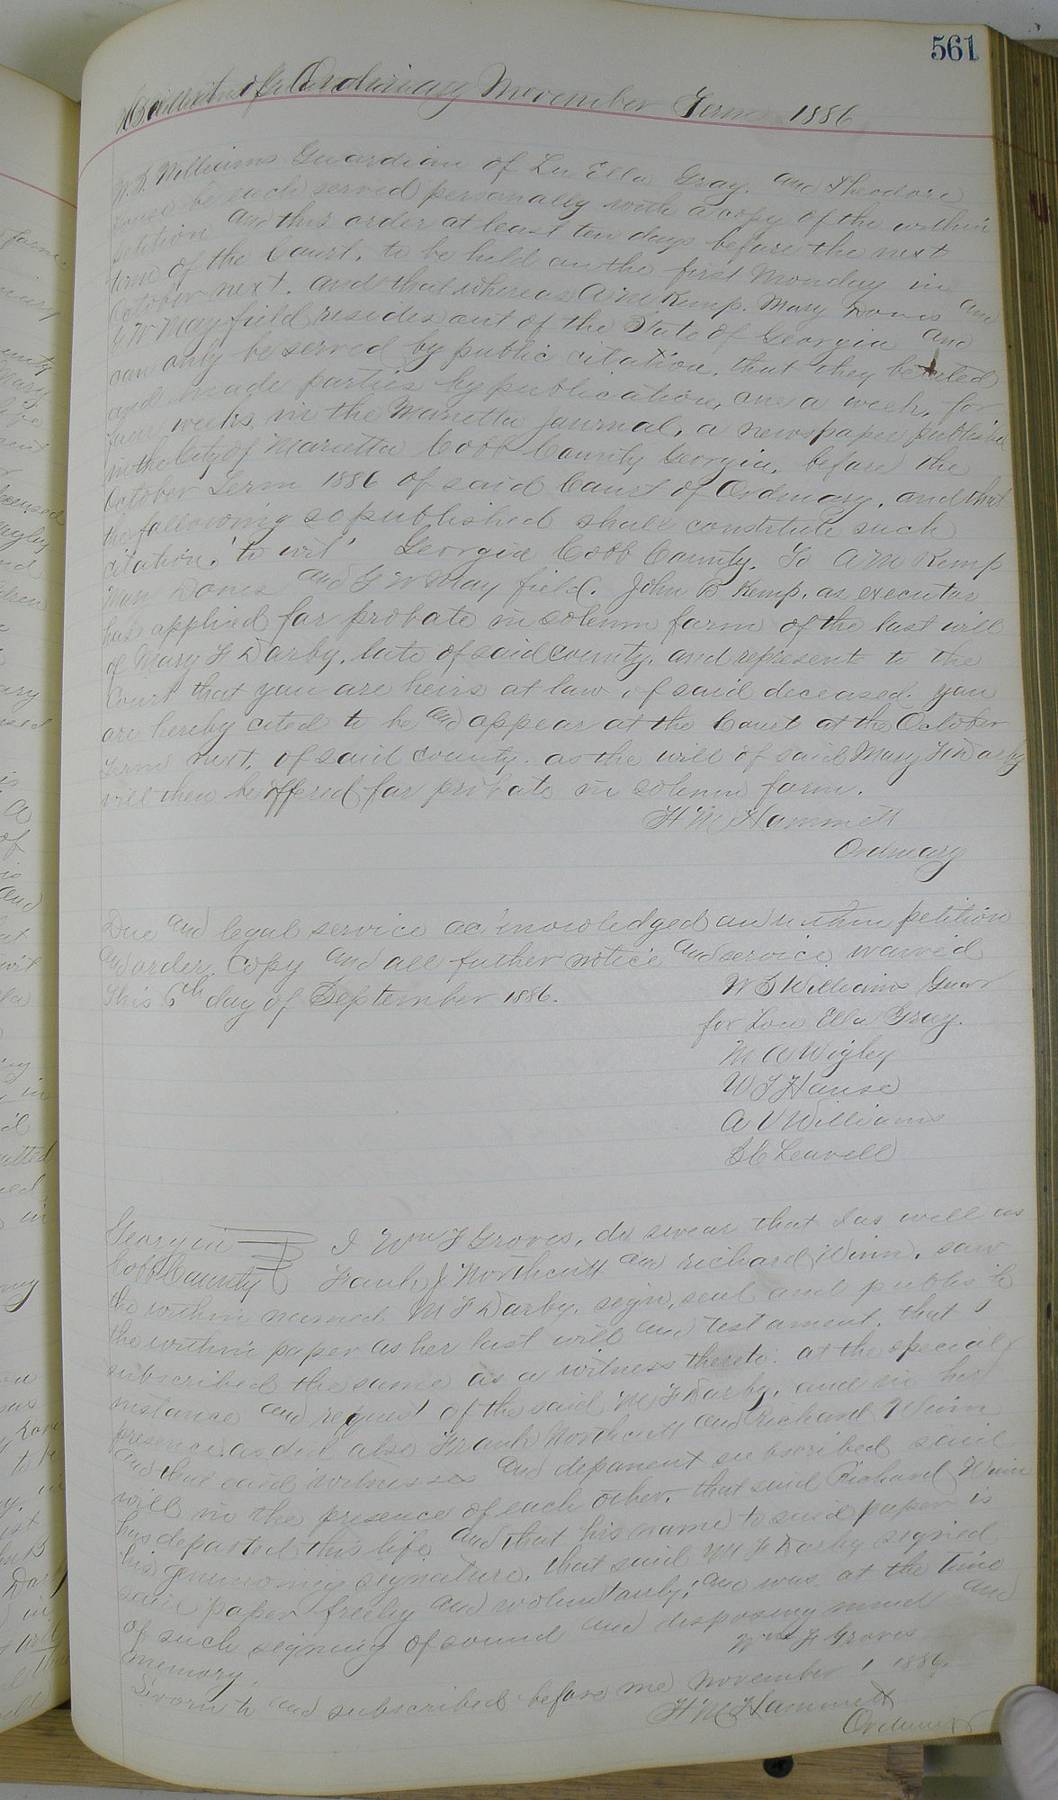 561
Court of Ordinary November Term 1886
W. S. Williams Guardian of Lu Ella Gray. and Theodore
be each served personally with a copy of the within
petition and this order at least ten days before the next
term of the Court, to be held on the first Monday in
October next. and that whereas A M Kemp. Mary Davis and
G W Mayfield resides out of the State of Georgia and
can only be served by public citation. that they be cited
and made parties by publication, once a week, for
four weeks, in the Marietta Journal, a newspaper published
in the City of Marietta Cobb County Georgia, before the
October Term 1886 of said Court of Ordinary, and that
the following so published shall constitute such
citation. "to wit" Georgia Cobb County. To A M Kemp
Mary Davis and G W Mayfield. John B Kemp. as executor
has applied for probate in solemn form of the last will
of Mary F Darby. late of said county. and represents to the
Court that you are heirs at law of said deceased. you
are hereby cited to be and appear at the Court at the October
Term next, of said county. as the will of said Mary F Darby
will then be offered for probate in solemn form.
H M Hammett
Ordinary
Due and legal service acknowledged on within petition
and order. Copy and all futher notice and service waived
This 6th day of September 1886.
W S Williams Guar
for Lou Ella Gray.
M A Wigley
W T Hause
A V Williams
Leavell
Georgia
Cobb County
I Wm F Groves, do swear that I as well as
Frank J Northcutt and richard Winn. saw
the within named M F Darby. sign, seal and publish
the within paper as her last will and testament. that I
subscribed the same as a witness thereto. at the special
instance and request of the said M F Darby. and in her
presence. as did also Frank Northcutt and Richard Winn
and that said witnesses and deponent subscribed said
will in the presence of each other. that said Richard Winn
has departed this life. and that his name to said paper is
his signature. that said M F Darby signed
said paper freely and voluntarily; and was at the time
of such signing of sound and disposing mind and
memory.
Wm F Groves
Sworn to and subscribed before me November 1 1886.
H M Hammett
Ordinary